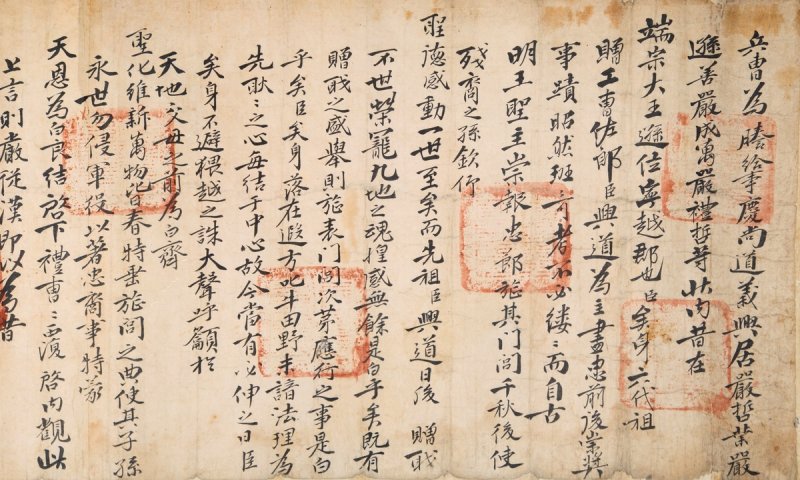 兵曹爲謄給事慶尙道義興居嚴哲榮嚴
遜善嚴成萬嚴禮哲等狀內昔在
端宗大王遜位寧越郡也臣矣身六代祖
贈工曹佐郎臣興道爲主盡忠前後崇奬
事蹟昭然班可考不必縷縷而自古
明王聖主崇報忠節旌其門閭千秋後使
殘裔之孫欽仰
聖德感動一世至矣而先祖臣興道日後 贈職
不世榮寵九地之魂惶感無餘是白乎矣旣有
贈職之盛擧則旌表門閭次第應行之事是白
乎矣臣矣身落在遐方叱牛田野未諳法理爲
先耿耿之心每結于中心故今當有以伸之日臣
矣身不避猥越之誅大聲呼籲於
天地父母之前爲白齊
聖化維新萬物皆春特垂旌閭之典使其子孫
永世勿侵軍役以著忠裔事特蒙
天恩爲白良結啓下禮曹曹覆啓內觀此
上言則嚴從漢卽以爲昔